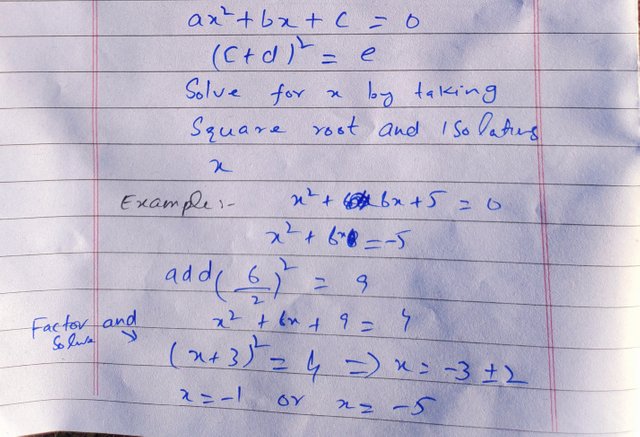 ax² + bx + c = 0
(c + d)² = e
Solve for x by taking
Square root and isolating
x
Example :- x² + 6x + 5 = 0
x² + 6x = -5
add (6/2)² = 9
x² + 6x + 9 = 4
Factor and
Solve
(x + 3)² = 4 => x = -3 ± 2
x = -1 or x = -5